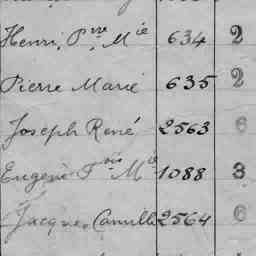 Henri, Pre Mie 634 2
Pierre Marie 635 2
Joseph René 2563 6
Eugène Fois Mie 1088 3
Jacques Camille 2564 6